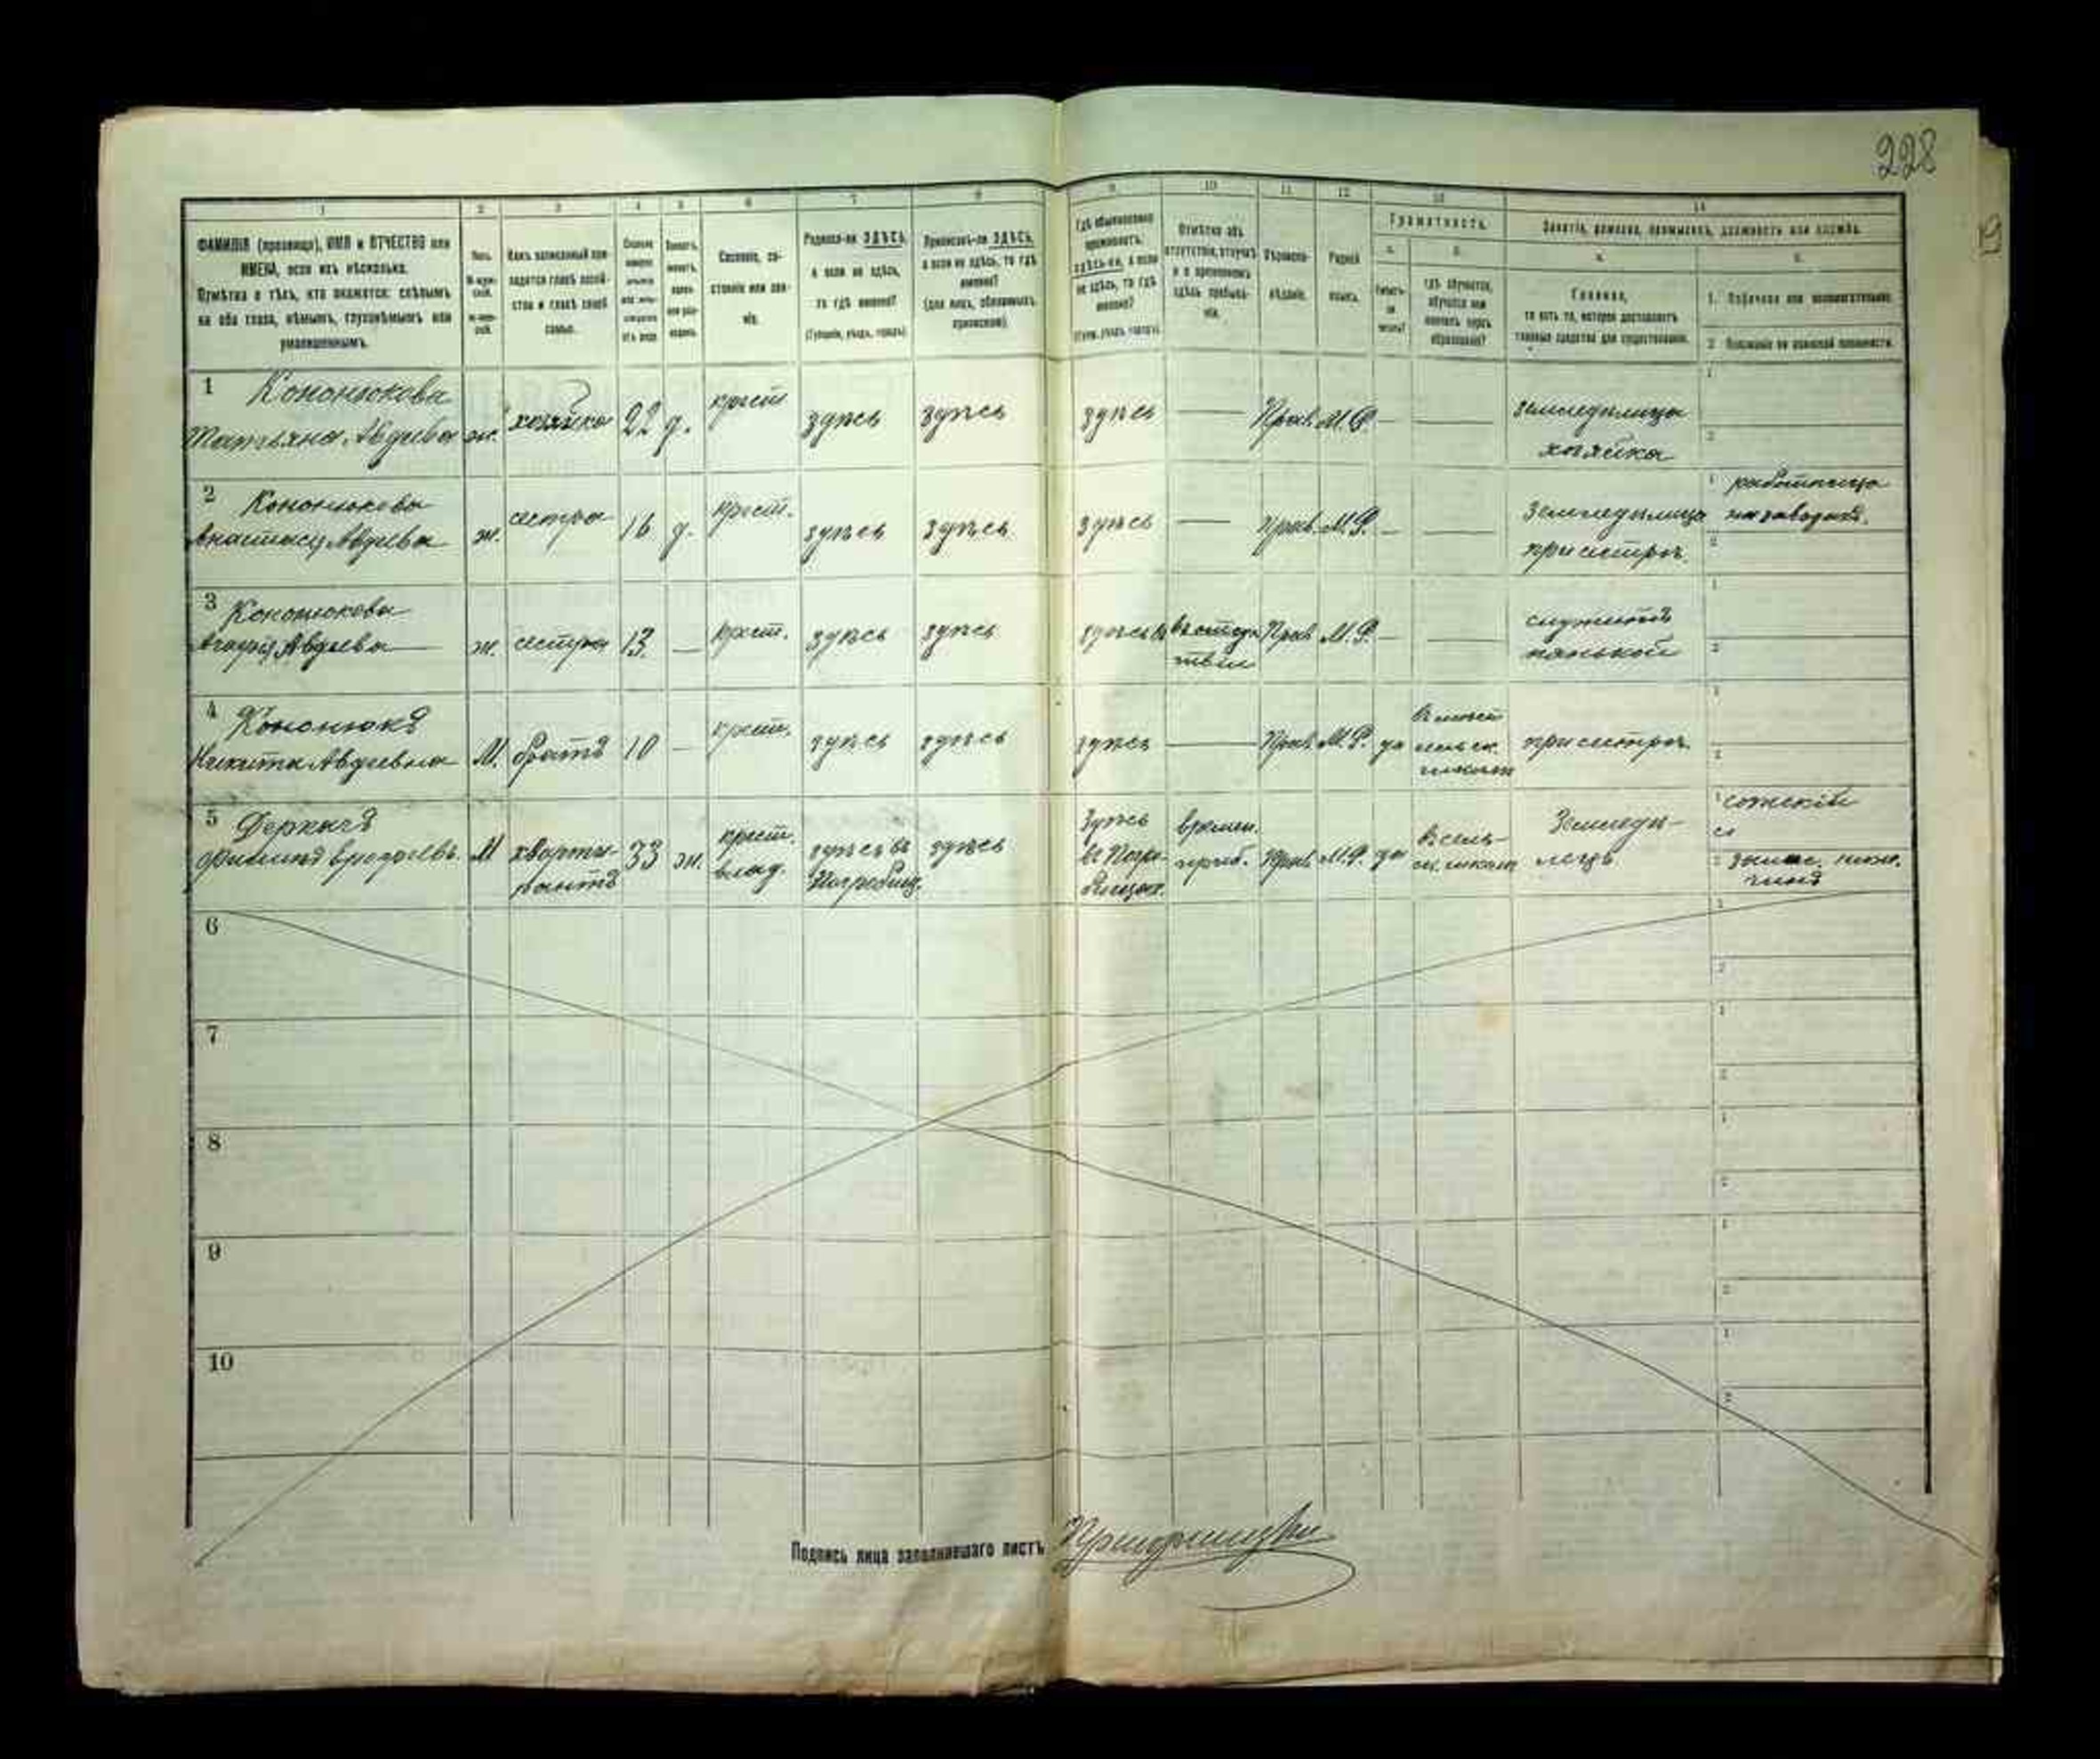 228
19
1 2 3 4 5 6 7 8 9 10 11 12 13 14
ФАМИЛІЯ (прозвище), ИМЯ и ОТЧЕСТВО или
ИМЕНА, если ихъ нѣсколько.
Отмѣтка о тѣхъ, кто окажется: слѣпымъ
на оба глаза, нѣмымъ, глухонѣмымъ или
умалишеннымъ.
Полъ.
М-муж-
ской.
ж-жен-
скій.
Какъ записанный при-
ходится главѣ хозяй-
ства и главѣ своей
семьи.
Сословіе, со-
стояніе или зва-
ніе.
Родился-ли ЗДѢСЬ,
а если не здѣсь,
то гдѣ именно?
(Губернія, уѣздъ, городъ).
Приписанъ-ли ЗДѢСЬ,
а если не здѣсь, то гдѣ
именно?
(для лицъ, обязанныхъ
припискою).
Гдѣ обыкновенно
проживаетъ:
здѣсь-ли, а если
не здѣсь, то гдѣ
именно?
(Губер. уѣздъ, городъ).
Отмѣтка объ
отсутствіи, отлучкѣ
и о временномъ
здѣсь пребыва-
ніи.
Вѣроиспо-
вѣданіе.
Родной
языкъ.
Грамотность.
а. б.
Умѣетъ-
ли
читать?
гдѣ обучается,
обучался или
кончилъ курсъ
образованія?
Занятіе, ремесло, промыселъ, должность или служба.
а. б.
Главное,
то есть то, которое доставляетъ
главныя средства для существованія.
1. Побочное или вспомогательное.
2. Положеніе по воинской повинности.
1 Кононюкова хозяйка 22 д. крест здѣсь здѣсь здѣсь — Прав. М.Р. — — земледѣлица
Татьяна Авдѣева ж. хозяйка
2 Кононюкова сестра 16 д. крест. здѣсь здѣсь здѣсь — Прав. М.Р. — — Земледѣлица работница
Анастасія Авдѣева ж. при сестрѣ на заводѣ.
3 Кононюкова сестра 13 — крест. здѣсь здѣсь здѣсь въ отсут Прав М.Р. — — служитъ
Авдѣева ж. ствіи нянькой
4 Кононюкъ М. братъ 10 — крест. здѣсь здѣсь здѣсь — Прав. М.Р. да при сестрѣ
Никита
школѣ
5 Деркачъ М кварти- 33 ж. крест. здѣсь въ здѣсь Здѣсь времен. Прав. М.Р. да В сель- Земледѣ- сотскій
Филиппъ рантъ влад. Погребищ. въ Погре- преб. ск. школѣ лецъ
бищах. запас. ниж.
чинъ
6
7
8
9
10
Подпись лица заполнившаго листъ